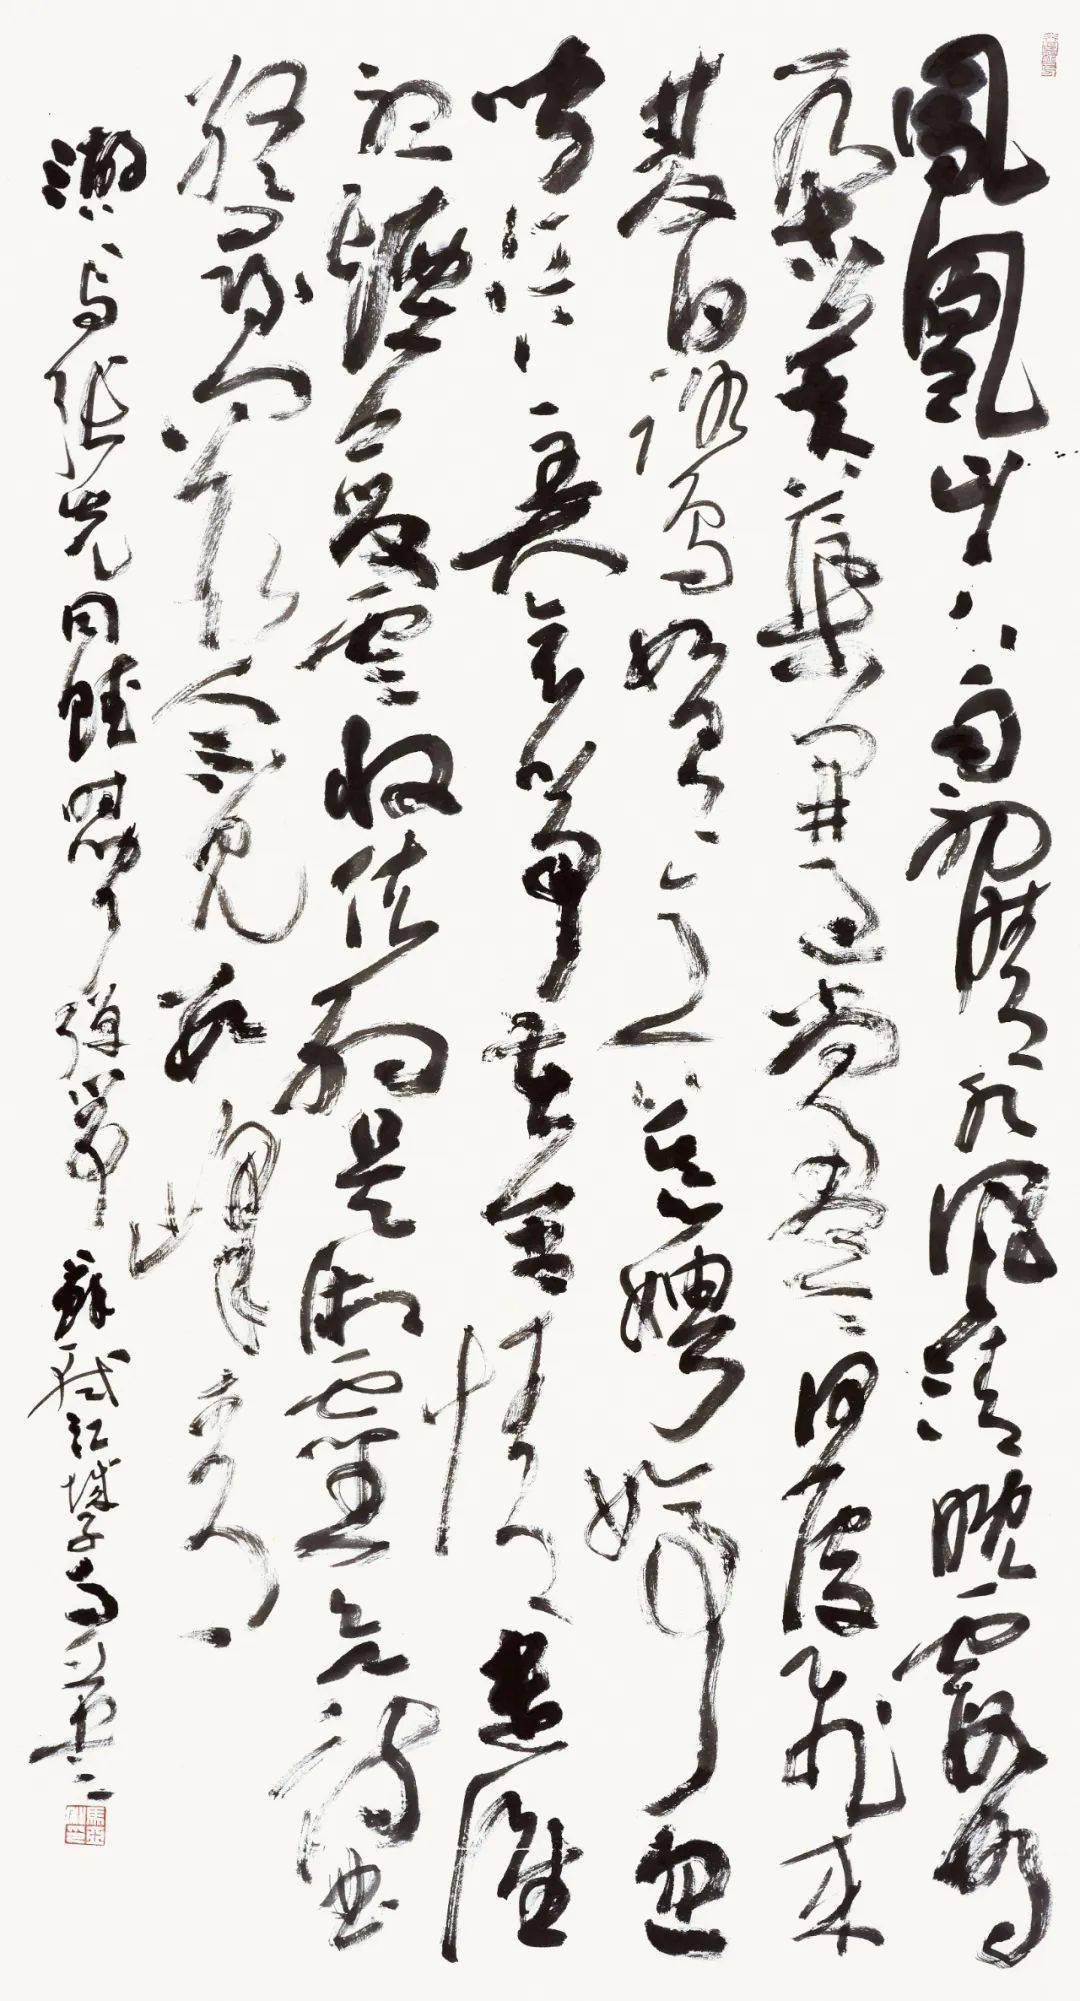 鳳凰山下雨初晴水風清晚霞明
一朵芙蕖開過尚盈盈何處飛來
雙白鷺如有意慕娉婷忽
聞江上弄哀箏苦含情遣誰
聽煙斂雲收依約是湘靈欲待曲
終尋問取人不見數峰青
湖上与張先同賦時聞彈箏 蘇軾江城子